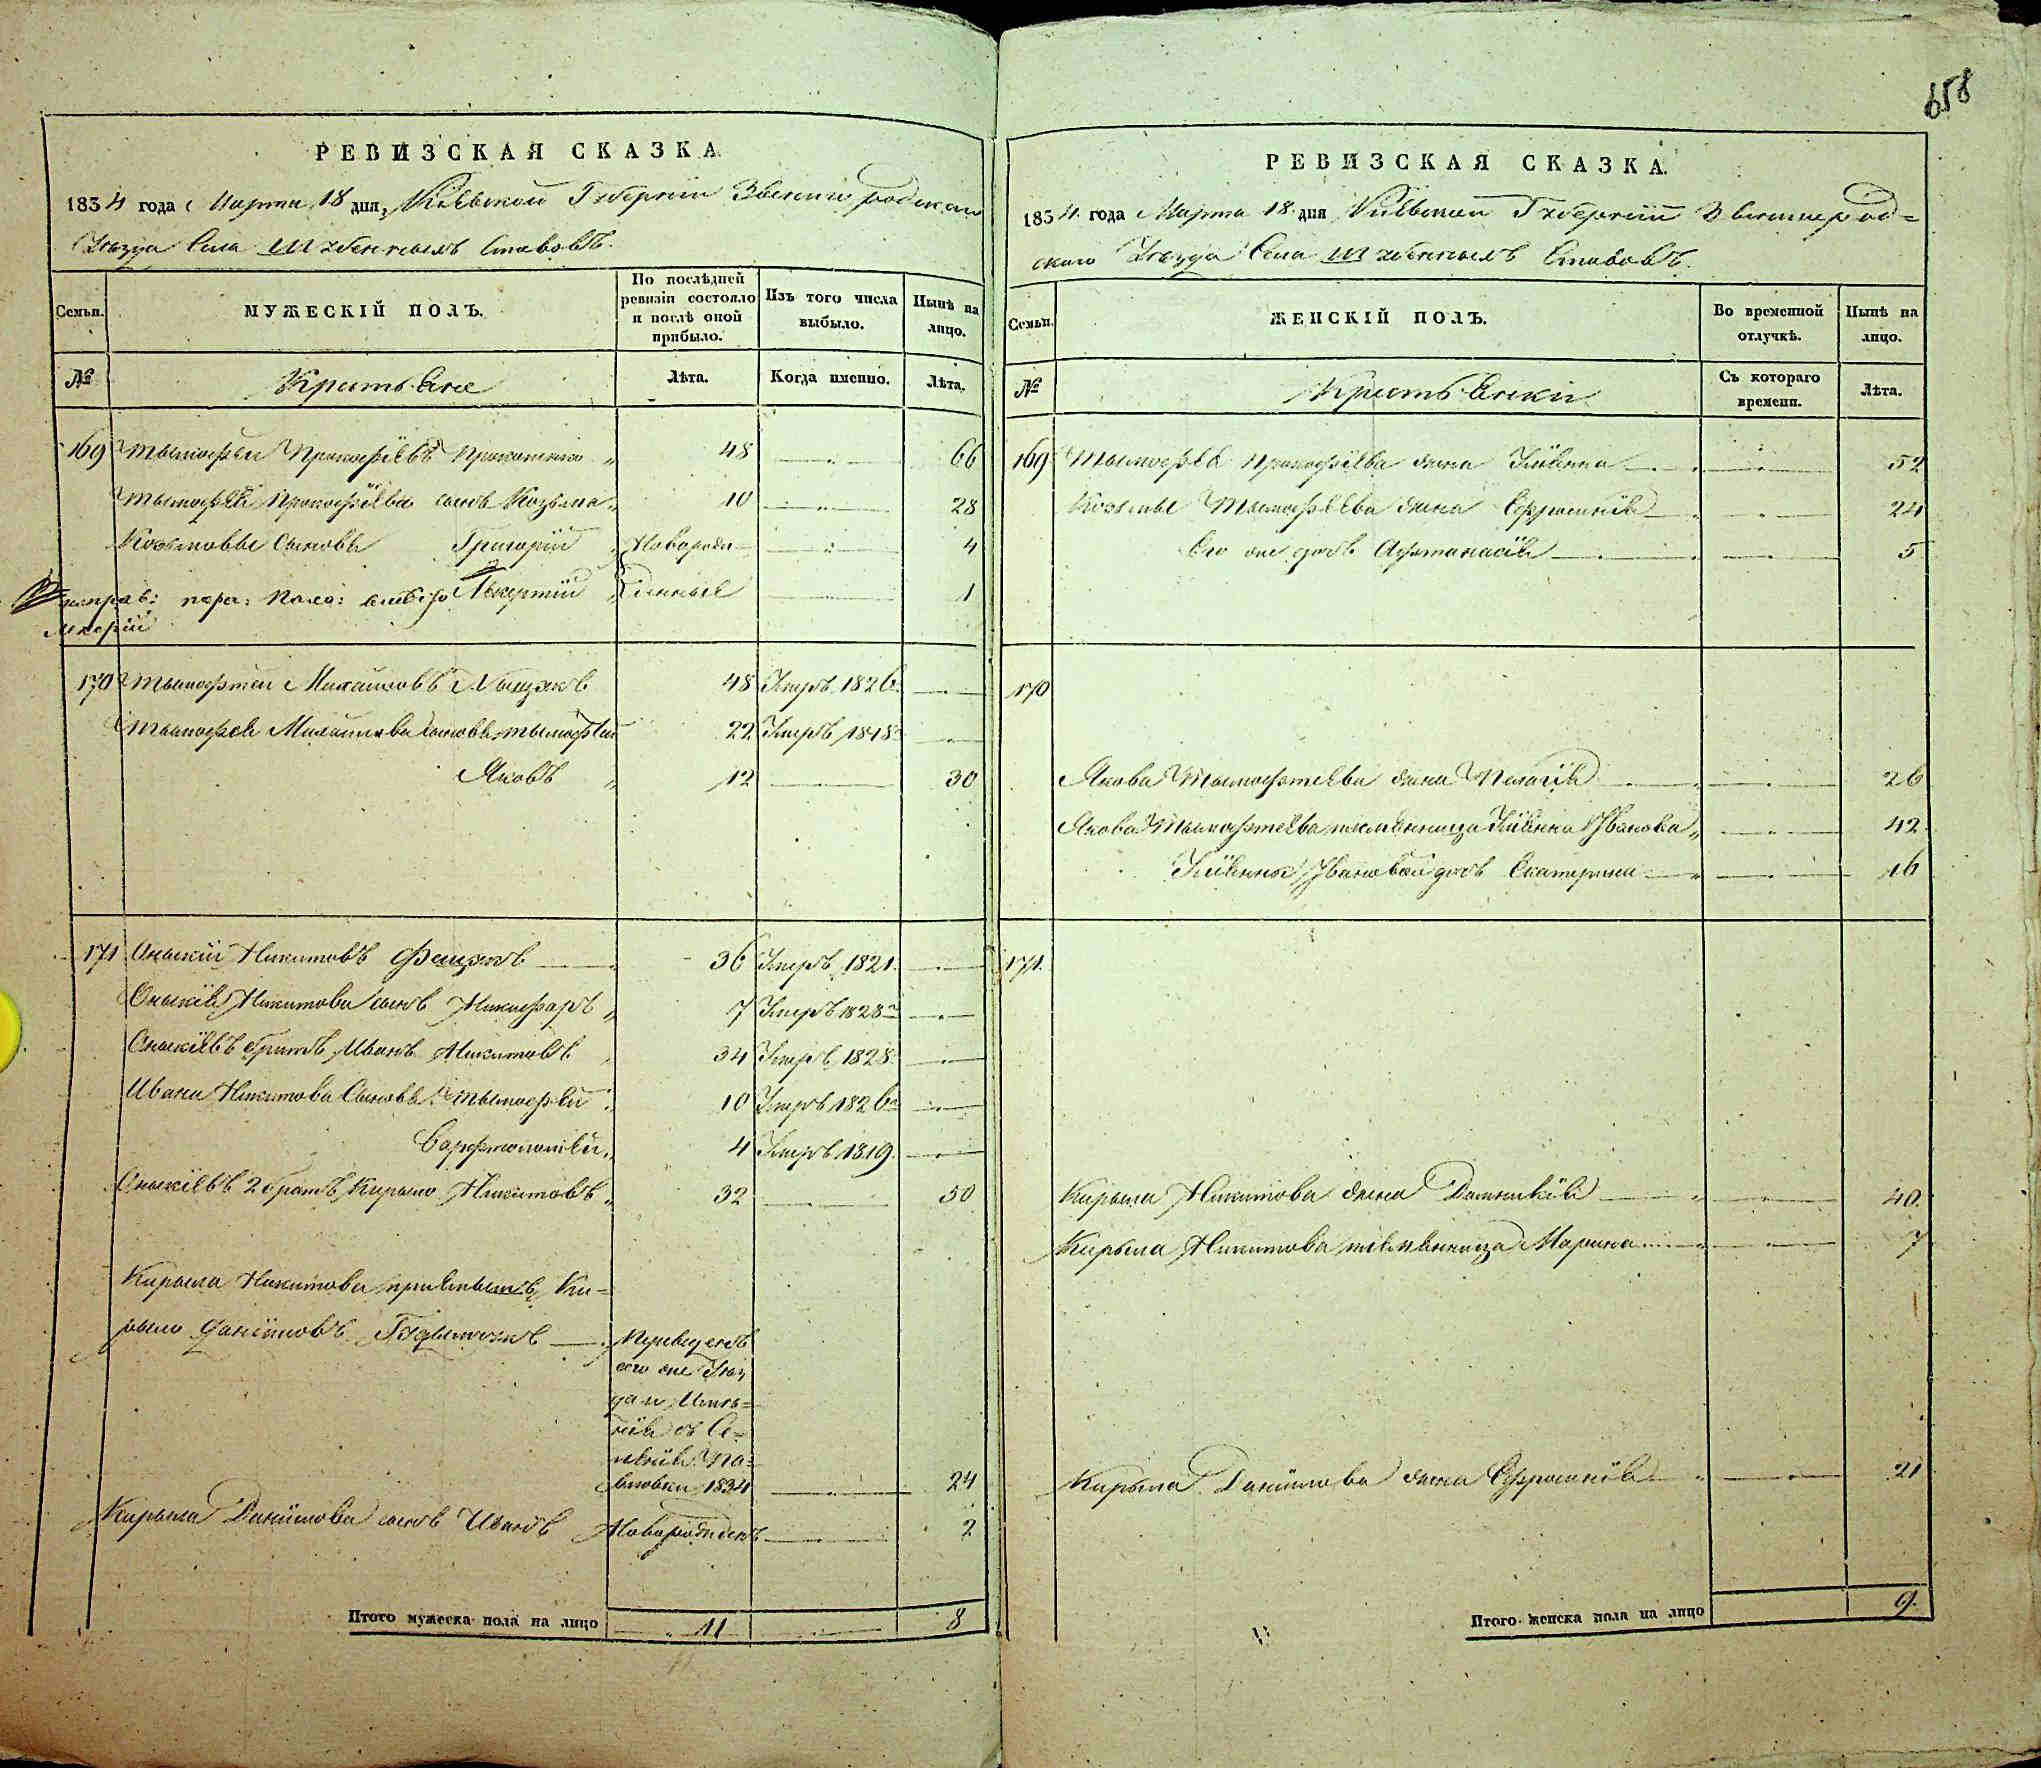 658
РЕВИЗСКАЯ СКАЗКА.
1834 года Марта 18 дня, Кіевской Губерніи Звенигородскаго
Уѣзда Села Шубенныхъ Ставовъ.
Семьи.
МУЖЕСКІЙ ПОЛЪ.
По послѣдней ревизіи состояло и послѣ оной прибыло.
Изъ того числа выбыло.
Нынѣ на лицо.
№
Крестьяне
Лѣта.
Когда именно.
Лѣта.
169 Тымофей Прокофіевъ 48 66
Тымофея Прокофіева сынъ Козьма 10 28
Козьмовы Сыновья Григорій Новорож- 4
Лаврентій денные 1
170 Тымофтей Михайловъ 48 Умеръ 1826
Тымофея Михайлова сыновья Тымофей 22 Умеръ 1818
Яковъ 12 30
171 Оныкій Никитовъ Фещукъ 36 Умеръ 1821
Оныкія Никитова сынъ Никифоръ 7 Умеръ 1828
Оныкіевъ братъ Иванъ Никитовъ 34 Умеръ 1828
Ивана Никитова Сыновья Тымофей 10 Умеръ 1826
Варфтоломей 4 Умеръ 1819
Оныкіевъ 2 братъ Кирыло Никитовъ 32 50
Кирыла Никитова пріемышъ Ки-
рыло Даніиловъ
Переведенъ
его же Уѣз
да и Имѣ-
нія съ Се-
ленія
1834 24
Кирыла Даніилова сынъ Иванъ Новорожденъ 2
Итого мужеска пола на лицо 11 8
РЕВИЗСКАЯ СКАЗКА.
1834 года Марта 18 дня Кіевской Губерніи Звенигород=
скаго Уѣзда Села Шубенныхъ Ставовъ.
Семьи.
ЖЕНСКІЙ ПОЛЪ.
Во временной отлучкѣ.
Нынѣ на лицо.
№
Крестьянки
Съ котораго времени.
Лѣта.
169 Тымофея Прокофіева жена Уліянна 52
Козьмы Тымофеева жена Ефросинія 24
Его же дочь Афтанасія 5
170
Якова Тымофтеева жена Пелагія 26
Якова Тымофтеева племянница Уліянна Иванова 42
Уліянны Ивановой дочь Екатерина 16
171
Кирыла Никитова жена Домникія 40
Кирыла Никитова племянница Марина 7
Кирыла Даніилова жена Ефросинія 21
Итого женска пола на лицо 9.